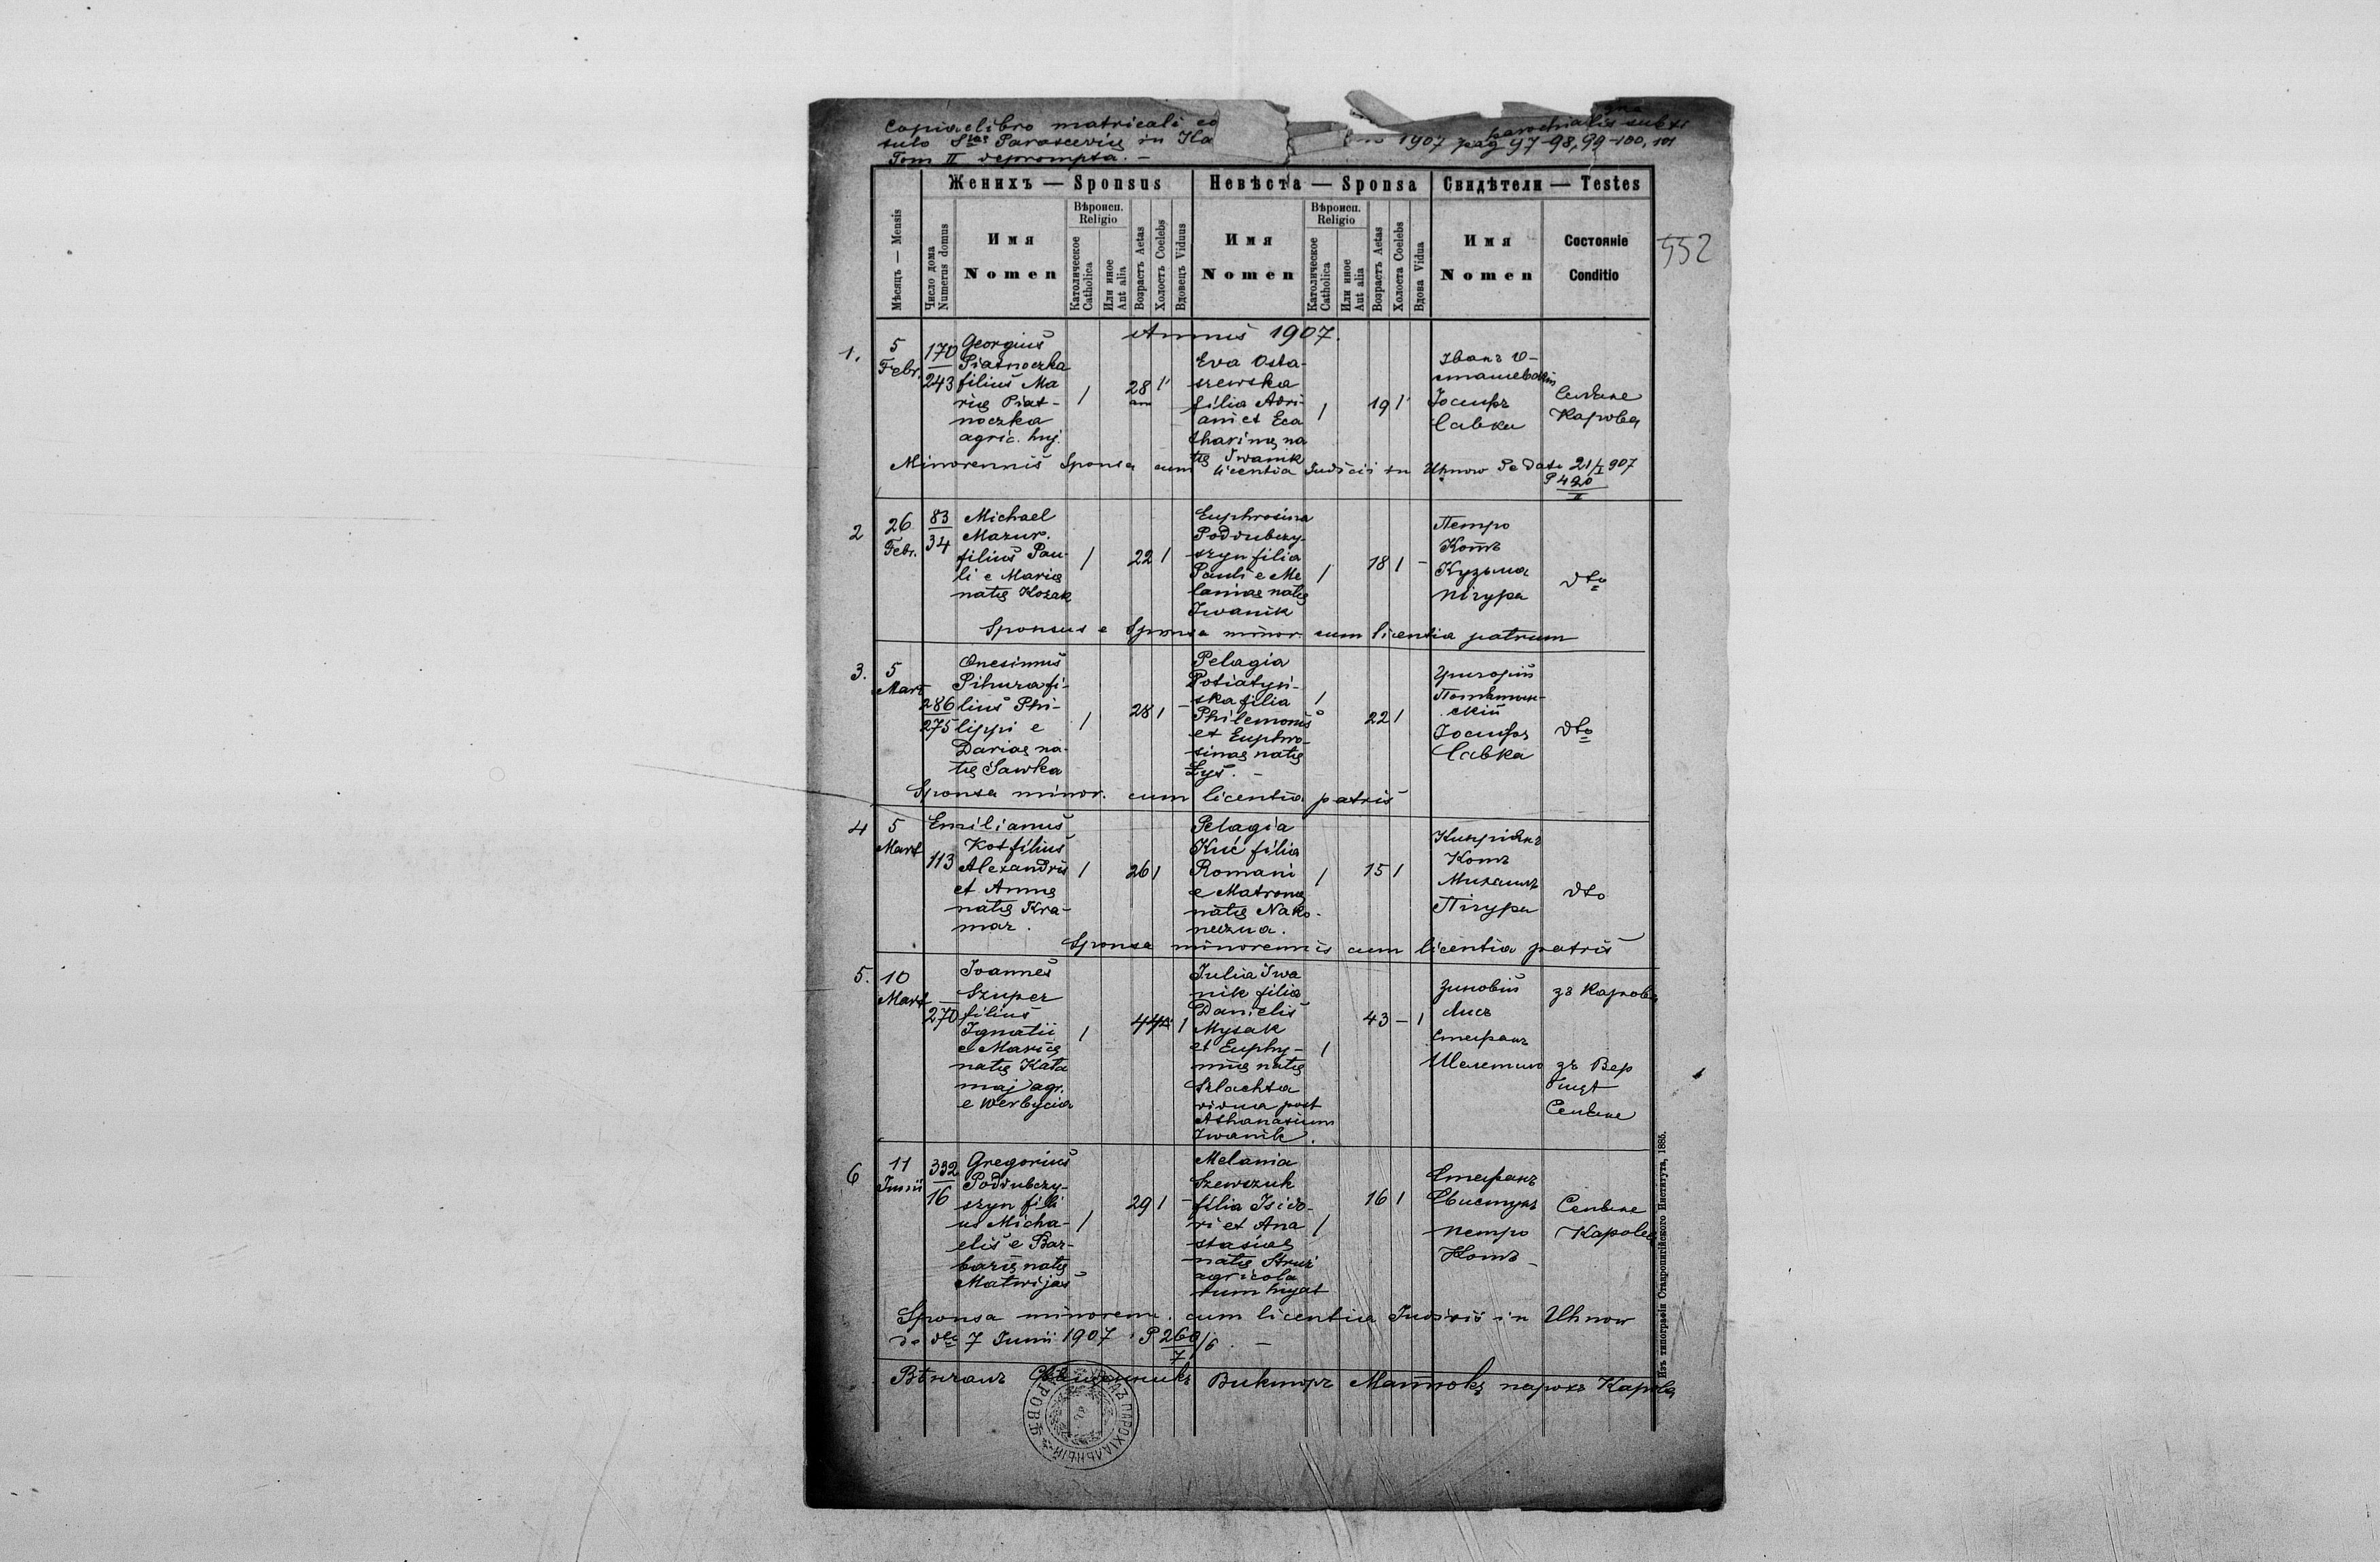 Copia e libro matricali
parochialis sub ti
tulo Stae Parascevię in Ka
1907 pag 97-98, 99-100, 101
Tom II deprompta. –
Женихъ — Sponsus
Невѣста — Sponsa
Свидѣтели — Testes
Мѣсяцъ — Mensis
Число дома
Numerus domus
Имя
Nomen
Вѣроисп.
Religio
Католическое
Catholica
Или иное
Aut alia
Возрастъ Aetas
Холостъ Coelebs
Вдовецъ Viduus
Имя
Nomen
Вѣроисп.
Religio
Католическое
Catholica
Или иное
Aut alia
Возрастъ Aetas
Холоста Coelebs
Вдова Vidua
Имя
Nomen
Состояніе
Conditio
552
Annus 1907.
1.
5
Febr.
170
243
Georgius
Piatnoczka
filius Ma
rię Piat-
noczka
agric. huj.
1
28
1
Eva Osta-
szewska
filia Adri
ani et Eca
tharinę na
tę Iwanik
1
19
1
Іванъ О-
сташевскій
Іосифъ
Савка
Селяне
Карова
Minorennis Sponsa cum licentia Judicii in Uhnow de dato 21/I 907
P 420
II
2
26
Febr.
83
34
Michael
Mazur.
filius Pau-
li e Maria
natę Kozak
1
22
1
Euphrosina
Poddubczy-
szyn filia
Pauli e Me
laniae natę
Iwanik
1
18
1
–
Петро
Котъ
Кузьма
Пігура
dto
Sponsus e Sponsa minor cum licentia patrum
3.
5
Mart
286
275
Onesimus
Pihura fi-
lius Phi-
lippi e
Dariae na-
tę Sawka
1
28
1
–
Pelagia
Potiatyń-
ska filia
Philemonis
et Euphro-
sinae natę
Łyś. –
1
22
1
Григорій
Потятин-
скій
Іосифъ
Савка
dto
Sponsa minor. cum licentia patris
4
5
Mart
113
Emilianus
Kot filius
Alexandris
et Annę
natę Kra-
mar.
1
26
1
Pelagia
Kuć filia
Romani
e Matronę
natę Nako-
neczna.
1
15
1
Кипріянъ
Котъ
Михаилъ
Пігура
dto
Sponsa minorennis cum licentia patris
5.
10
Mart
270
Ioannes
Szuper
filius
Ignatii
e Marię
natę Kata
maj agr.
e Werbycia
1
44
1
Julia Iwa
nik filia
Danielis
Mysak
et Euphy-
miię natę
Szlachta
vidua post
Athanasium
Iwanik.
1
43
–
1
Зиновій
Лисъ
Стефанъ
Шелестило
зъ Карова
зъ Вер
биця
Селяне
6
11
Junii
332
16
Gregorius
Poddubczy-
szyn fili
us Micha-
elis e Bar-
barę natę
Matwijas
1
29
1
–
Melania
Szewczuk
filia Isido-
ri et Ana
stasiae
natę Struź
agricola
rum hujat
1
16
1
Стефанъ
Свистунъ
Петро
Котъ –
Селяне
Карова
Sponsa minorenn. cum licentia Judicii in Uhnow
de dto 7 Junii 1907 P 260/6 . –
7
Вѣнчалъ Священникъ Викторъ Матюкъ парохъ Карова
Изъ типографіи Ставропигійского Института, 1885.